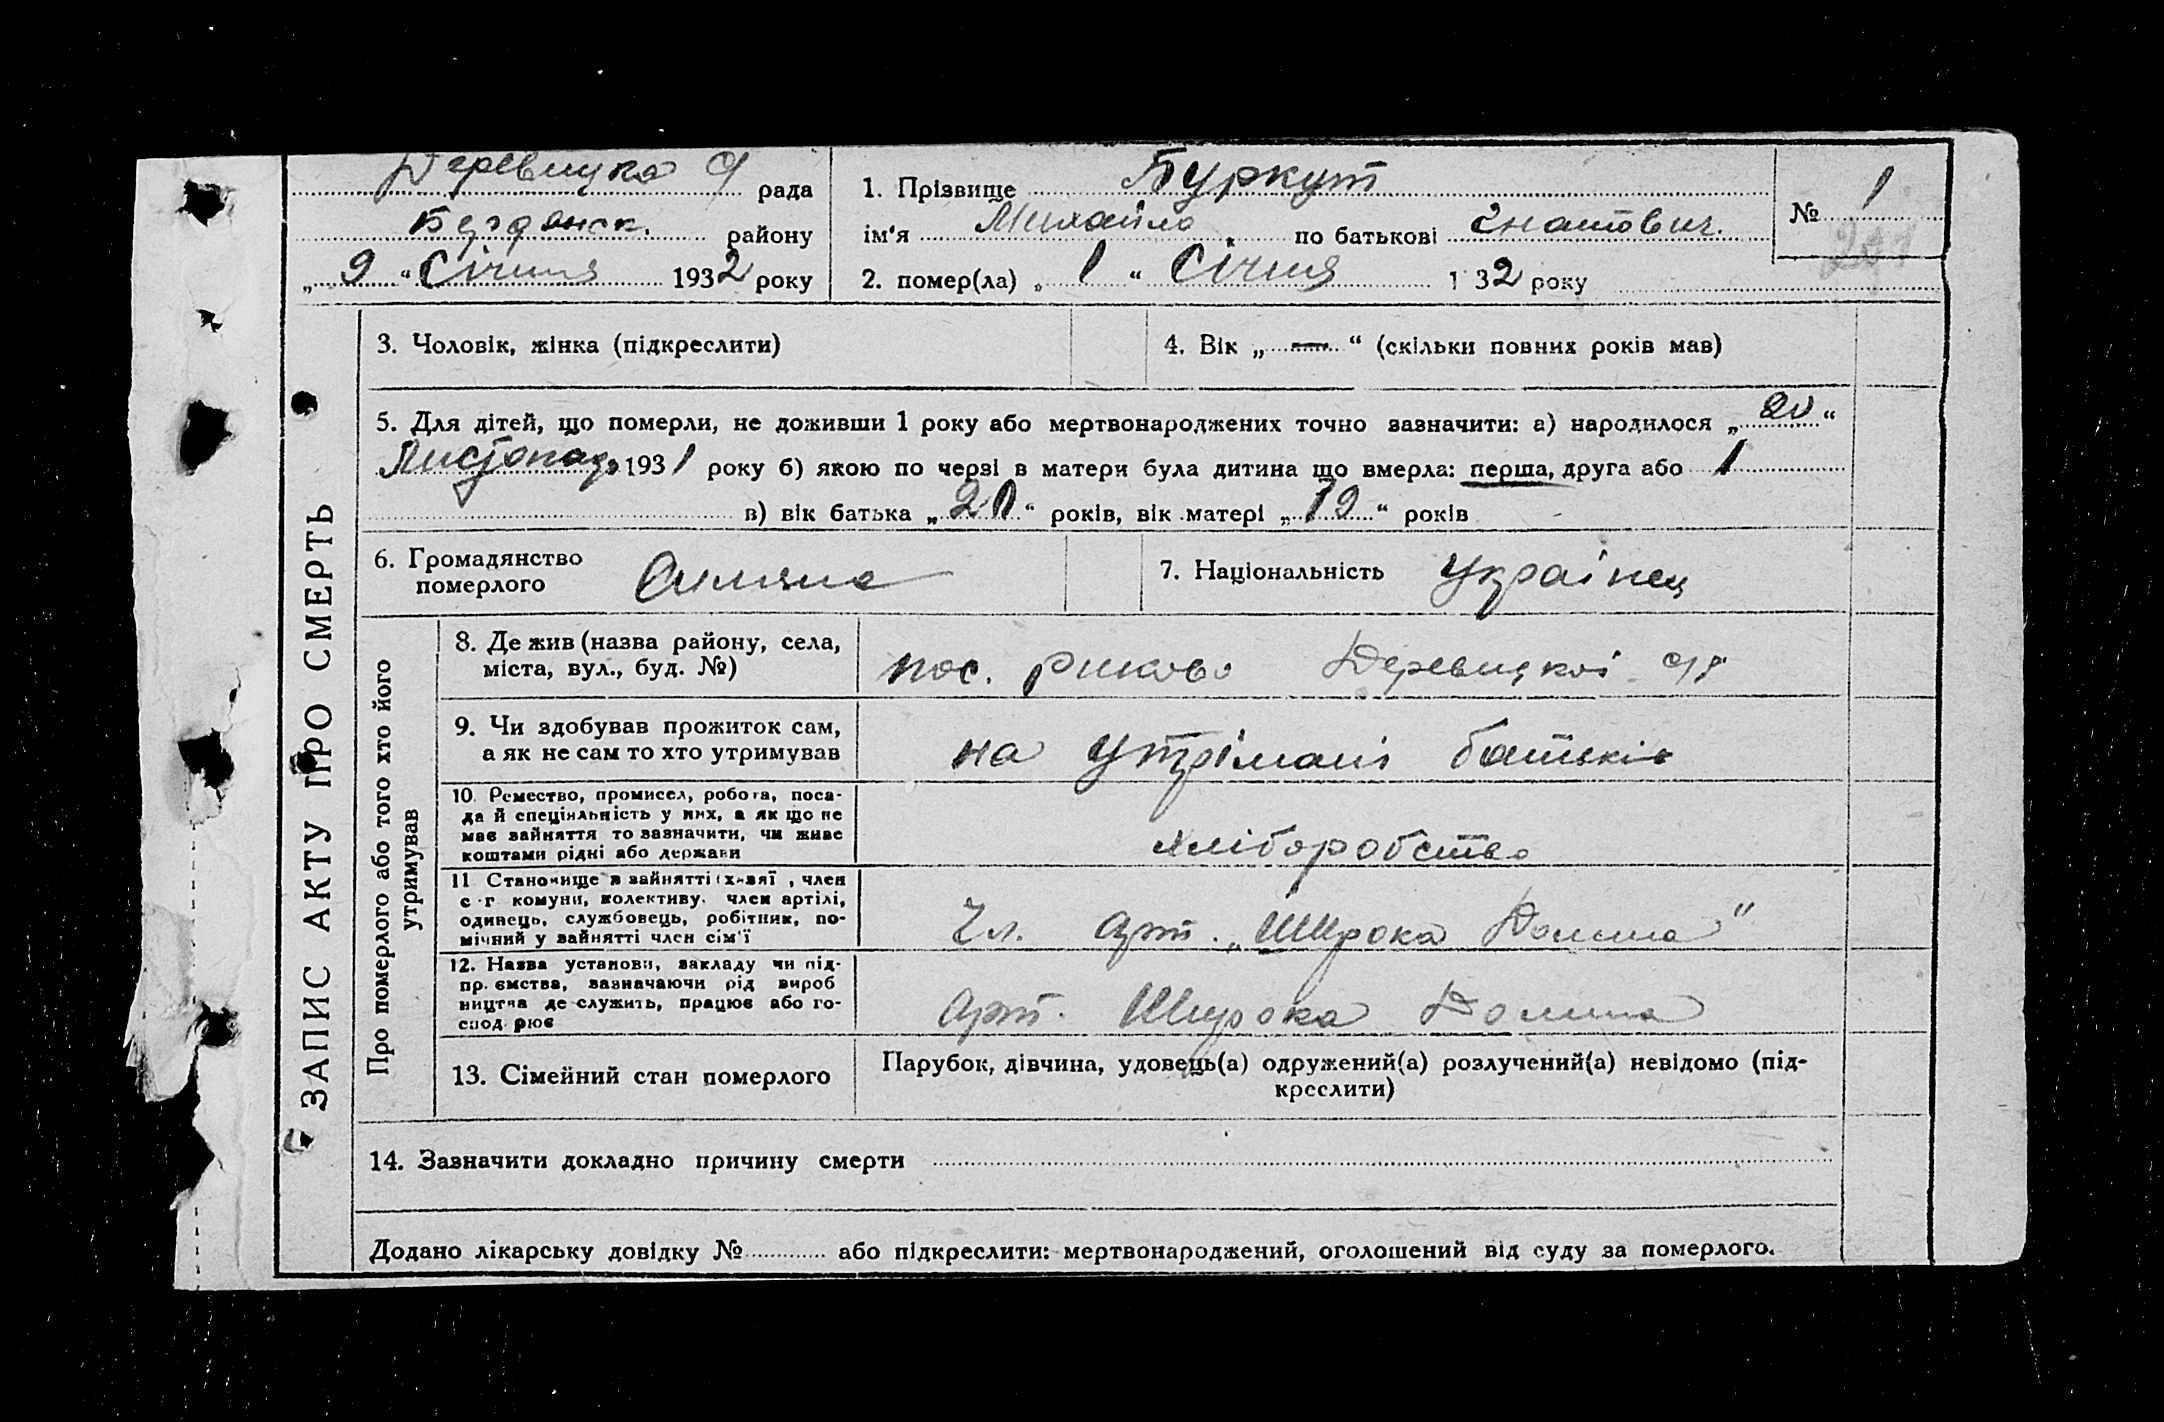 Деревицка с/ рада
района
„ 9 “ Січня 1932 року
1. Прізвище Буркут
ім'я Михайло по батькові Гнатович.
2. помер(ла) „ 1 “ Січня 1 32 року
№ 1
ЗАПИС АКТУ ПРО СМЕРТЬ
3. Чоловік, жінка (підкреслити)
4. Вік „ — “ (скільки повних років мав)
5. Для дітей, що померли, не доживши 1 року або мертвонароджених точно зазначити: а) народилося „ 20 “
Листопада 1931 року б) якою по черзі в матери була дитина що вмерла: перша, друга або 1
в) вік батька „ 20 “ років, вік матері „ 19 “ років
6. Громадянство
померлого
7. Національність Українец
Про померлого або того хто його
утримував
8. Де жив (назва району, села,
міста, вул., буд. №)
пос. Риково Деревицкої с/р
9. Чи здобував прожиток сам,
а як не сам то хто утримував
на утрімані батьків
10. Ремество, промисел, робота, поса-
да й спеціяльність у них, а як що не
має зайняття то зазначити, чи живе
коштами рідні або держави
хліборобство
11 Становище в зайнятті (хазяї , член
с-г комуни, колективу, член артілі,
одинець, службовець, робітник, по-
мічний у зайнятті член сім'ї
Чл. арт. „Широка Долина"
12. Назва установи, закладу чи під-
пр. ємства, зазначаючи рід вироб
ництва де служить, працює або го-
спод рює
Арт. Широка Долина
13. Сімейний стан померлого
Парубок, дівчина, удовець(а) одружений(а) розлучений(а) невідомо (під-
креслити)
14. Зазначити докладно причину смерти
Додано лікарську довідку № або підкреслити: мертвонароджений, оголошений від суду за померлого.